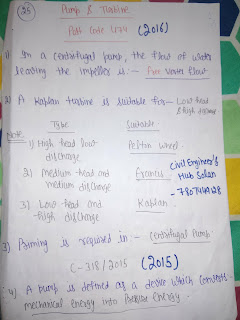 25
Pump & Turbine
Post Code 474 (2016)
1) In a centrifugal pump, the flow of water
leaving the impeller is :- Free Vortex flow
2) A Kaplan turbine is suitable for :- Low head
& high discharge
Note: Type Suitable
1) High head low Pelton wheel
discharge
2) Medium head and Francis
medium discharge
3) Low head and Kaplan
high discharge
Civil Engineer's
Hub Solan
3) Priming is required in - Centrifugal Pump
C-318/2015 (2015)
4) A pump is defined as a device which converts
mechanical energy into Pressure Energy.